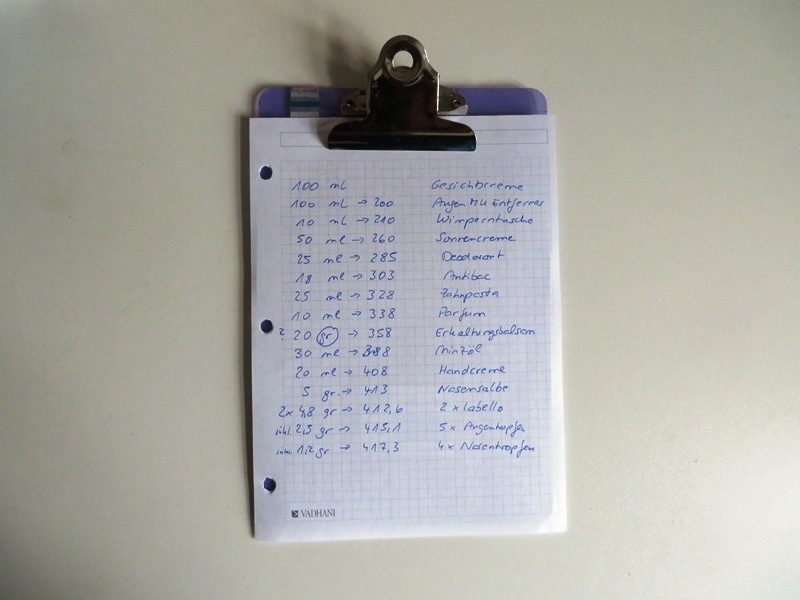 100 ml Gesichtscreme
100 ml → 200 Augen MU Entferner
10 ml → 210 Wimperntusche
50 ml → 260 Sonnencreme
25 ml → 285 Deodorant
18 ml → 303 Antibac
25 ml → 328 Zahnpasta
10 ml → 338 Parfum
? 20 gr → 358 Erkältungsbalsam
30 ml → 388 Minzöl
20 ml → 408 Handcreme
5 gr. → 413 Nasensalbe
2x 4,8 gr → 412,6 2 x Labello
inkl. 2,5 gr → 415,1 5 x Augentropfen
inkl. 1,2 gr → 417,3 4x Nasentropfen
VADHANI